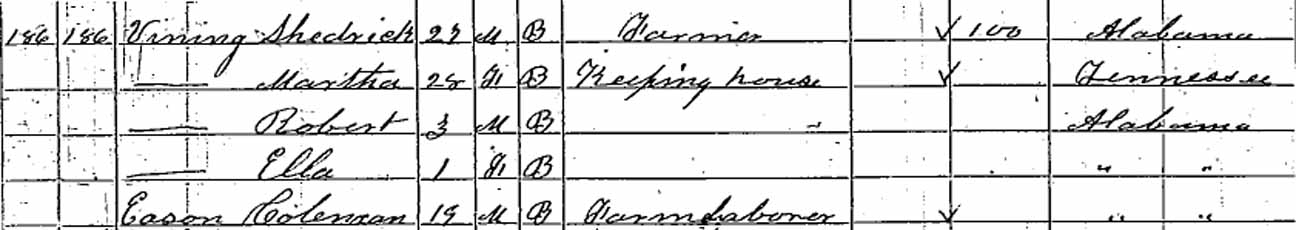 186 186 Vining Shedrick 29 M B Farmer ✓ 100 Alabama
— Martha 28 F B Keeping house ✓ Tennessee
— Robert 3 M B Alabama
— Ella 1 F B " "
Eason Coleman 19 M B Farm Laborer ✓ " "